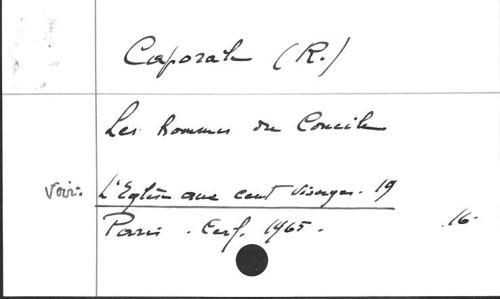 Caporale (R.)
Les hommes du Concile
Voir: L'Eglise aux cent visages. 19
Paris. Cerf. 1965. 16.